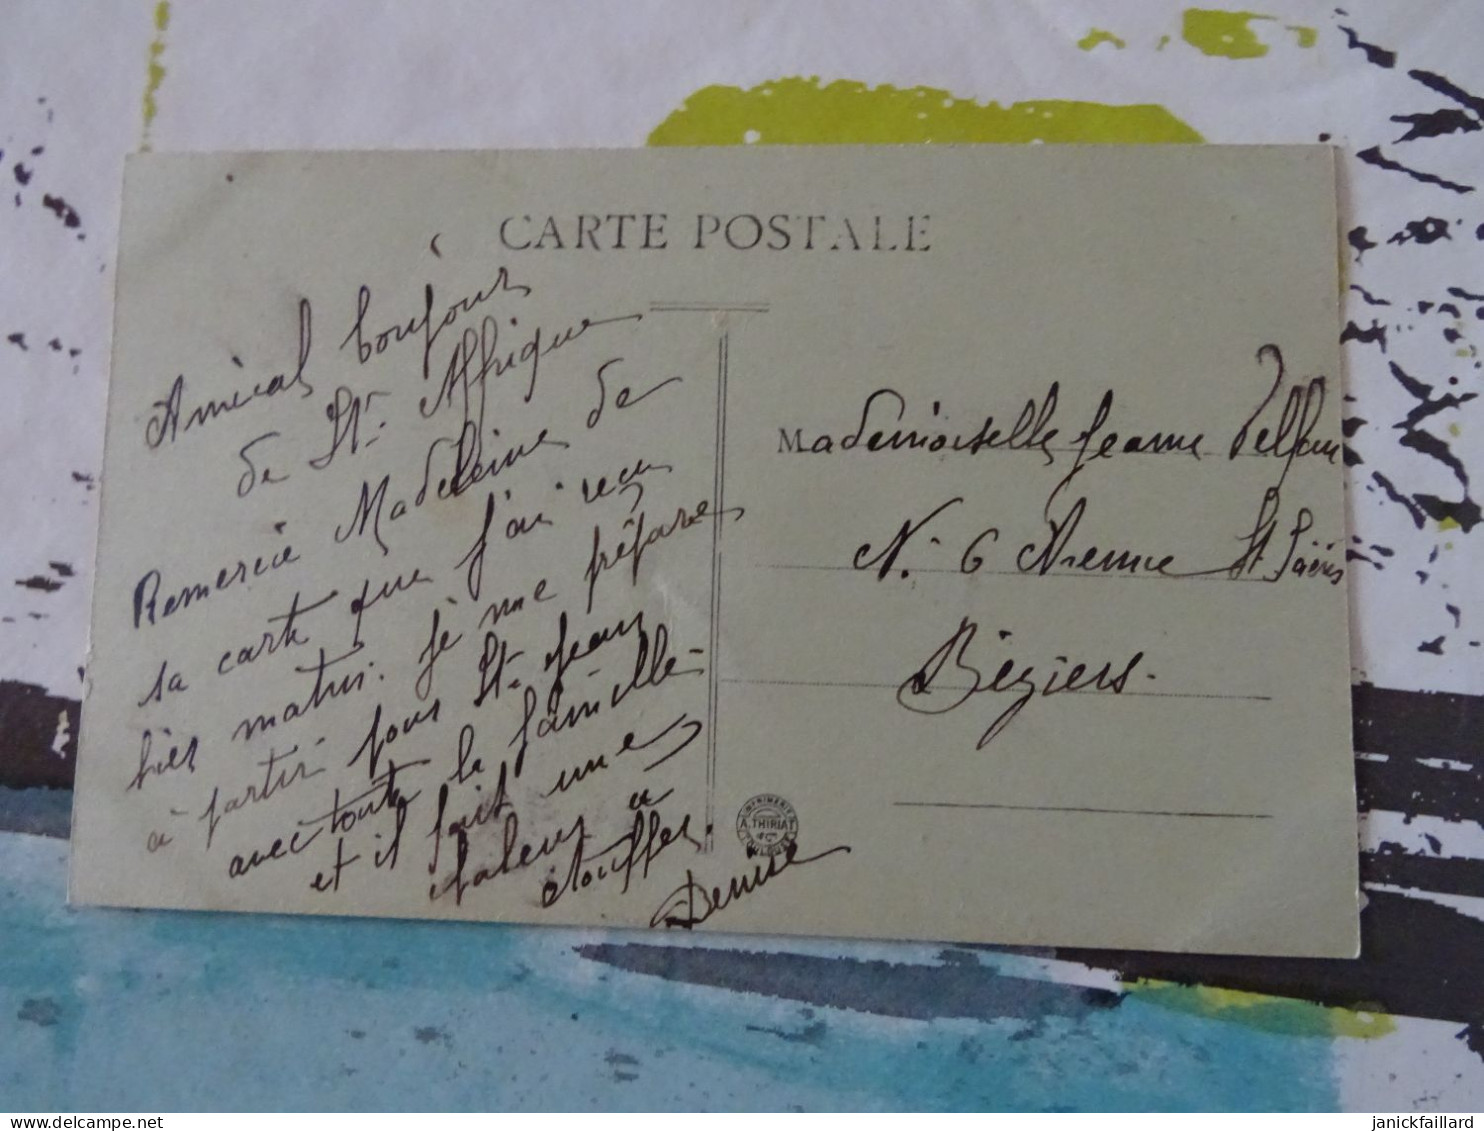 CARTE POSTALE
Amical bonjour
de St. Affrique
Remercie Madeleine de
sa carte que j'ai reçu
hier matin. Je me prépare
à partir pour St. Jean
avec toute la famille
et il fait une
chaleur à
étouffer.
Denise
Mademoiselle Jeanne
N. 6 Avenue St
Béziers.
IMPRIMERIE
A. THIRIAT
& Cie
TOULOUSE
delcampe.net
janickfaillard